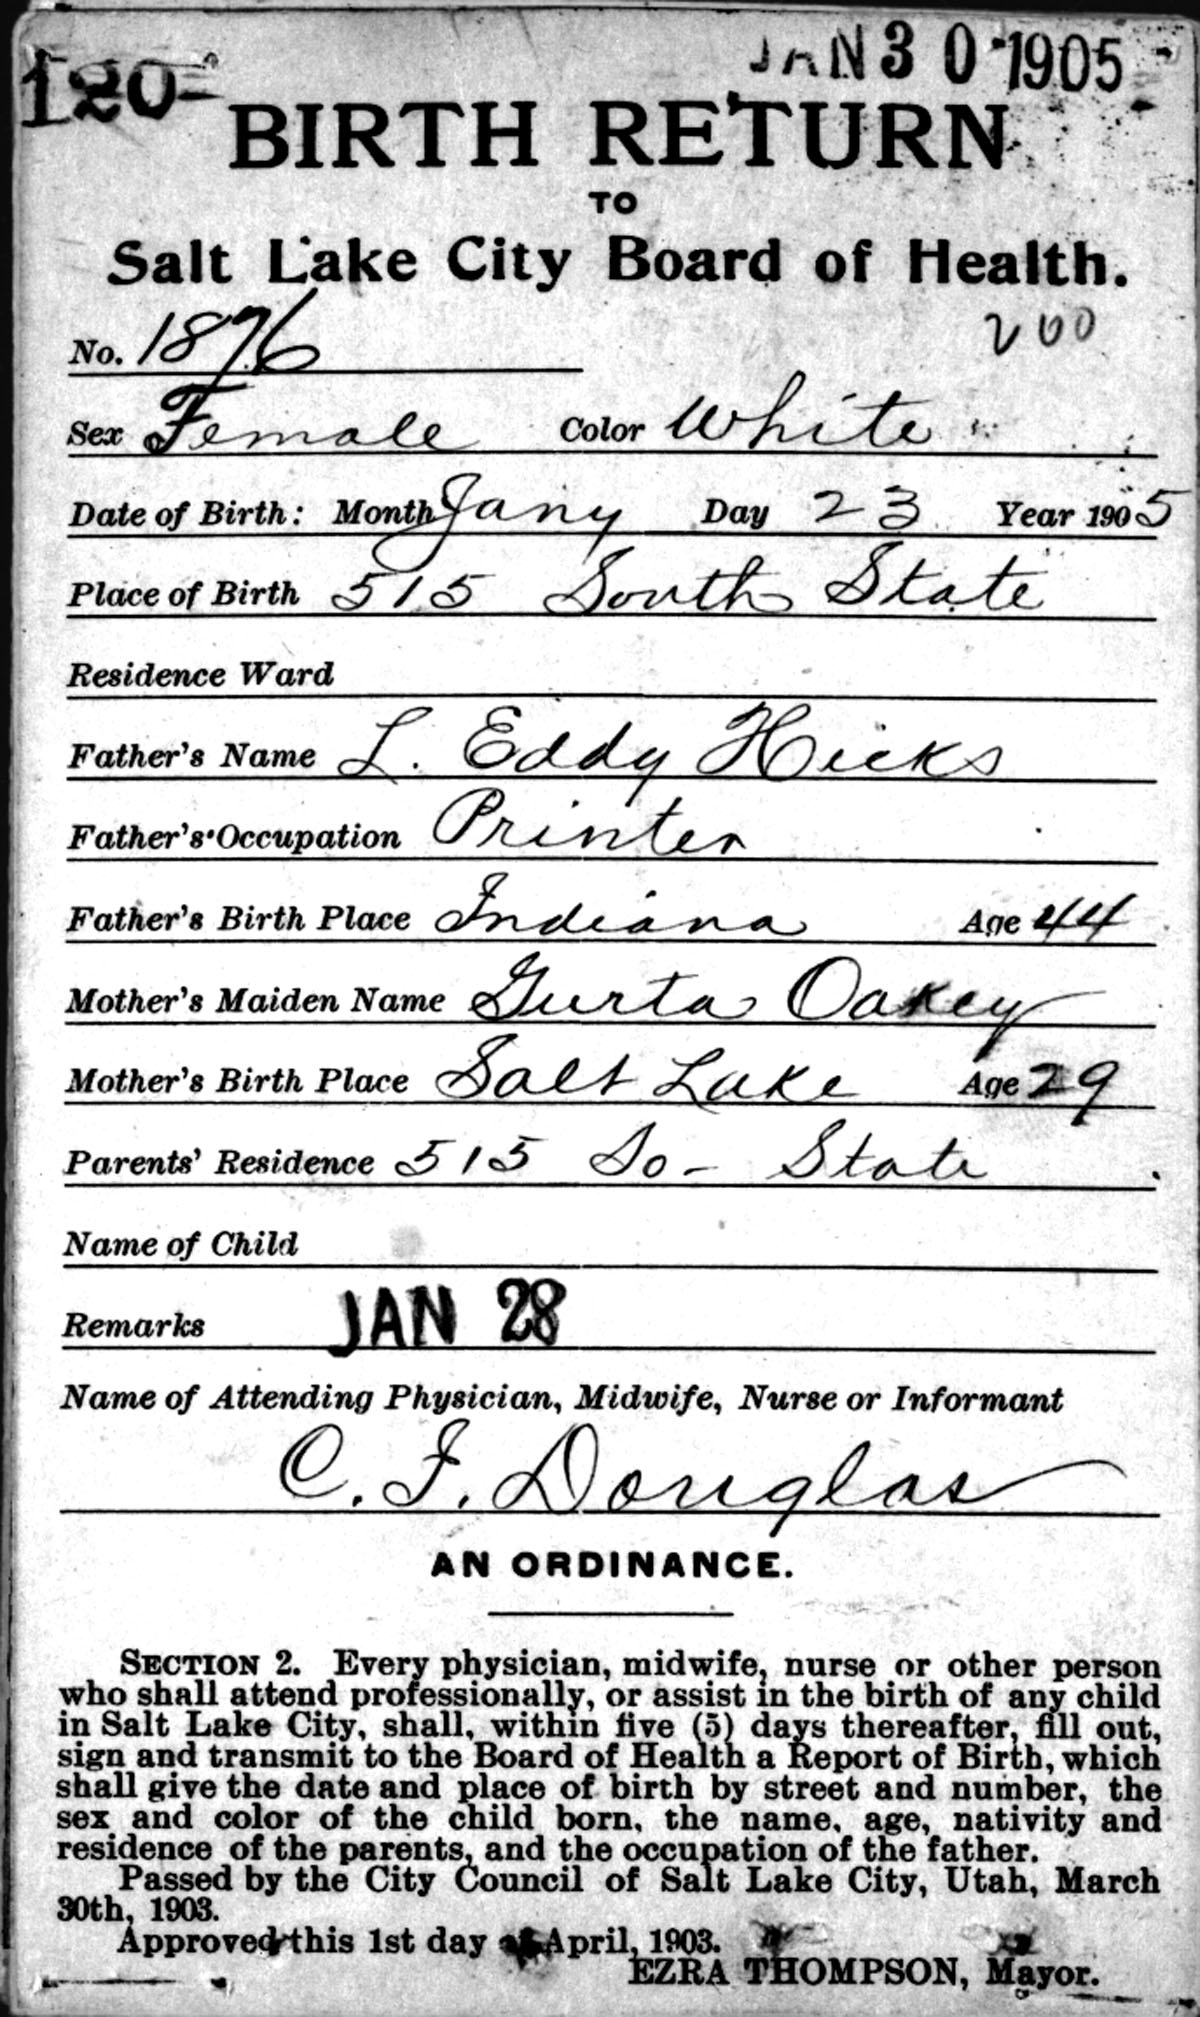 JAN 30 1905
120
BIRTH RETURN
TO
Salt Lake City Board of Health.
200
No. 1876
Sex Female Color White
Date of Birth: Month Jany Day 23 Year 1905
Place of Birth 515 South State
Residence Ward
Father's Name L. Eddy Hicks
Father's Occupation Printer
Father's Birth Place Indiana Age 44
Mother's Maiden Name Gurta Oakey
Mother's Birth Place Salt Lake Age 29
Parents' Residence 515 So - State
Name of Child
Remarks JAN 28
Name of Attending Physician, Midwife, Nurse or Informant
C. F. Douglas
AN ORDINANCE.
SECTION 2. Every physician, midwife, nurse or other person
who shall attend professionally, or assist in the birth of any child
in Salt Lake City, shall, within five (5) days thereafter, fill out,
sign and transmit to the Board of Health a Report of Birth, which
shall give the date and place of birth by street and number, the
sex and color of the child born, the name, age, nativity and
residence of the parents, and the occupation of the father.
Passed by the City Council of Salt Lake City, Utah, March
30th, 1903.
Approved this 1st day of April, 1903.
EZRA THOMPSON, Mayor.